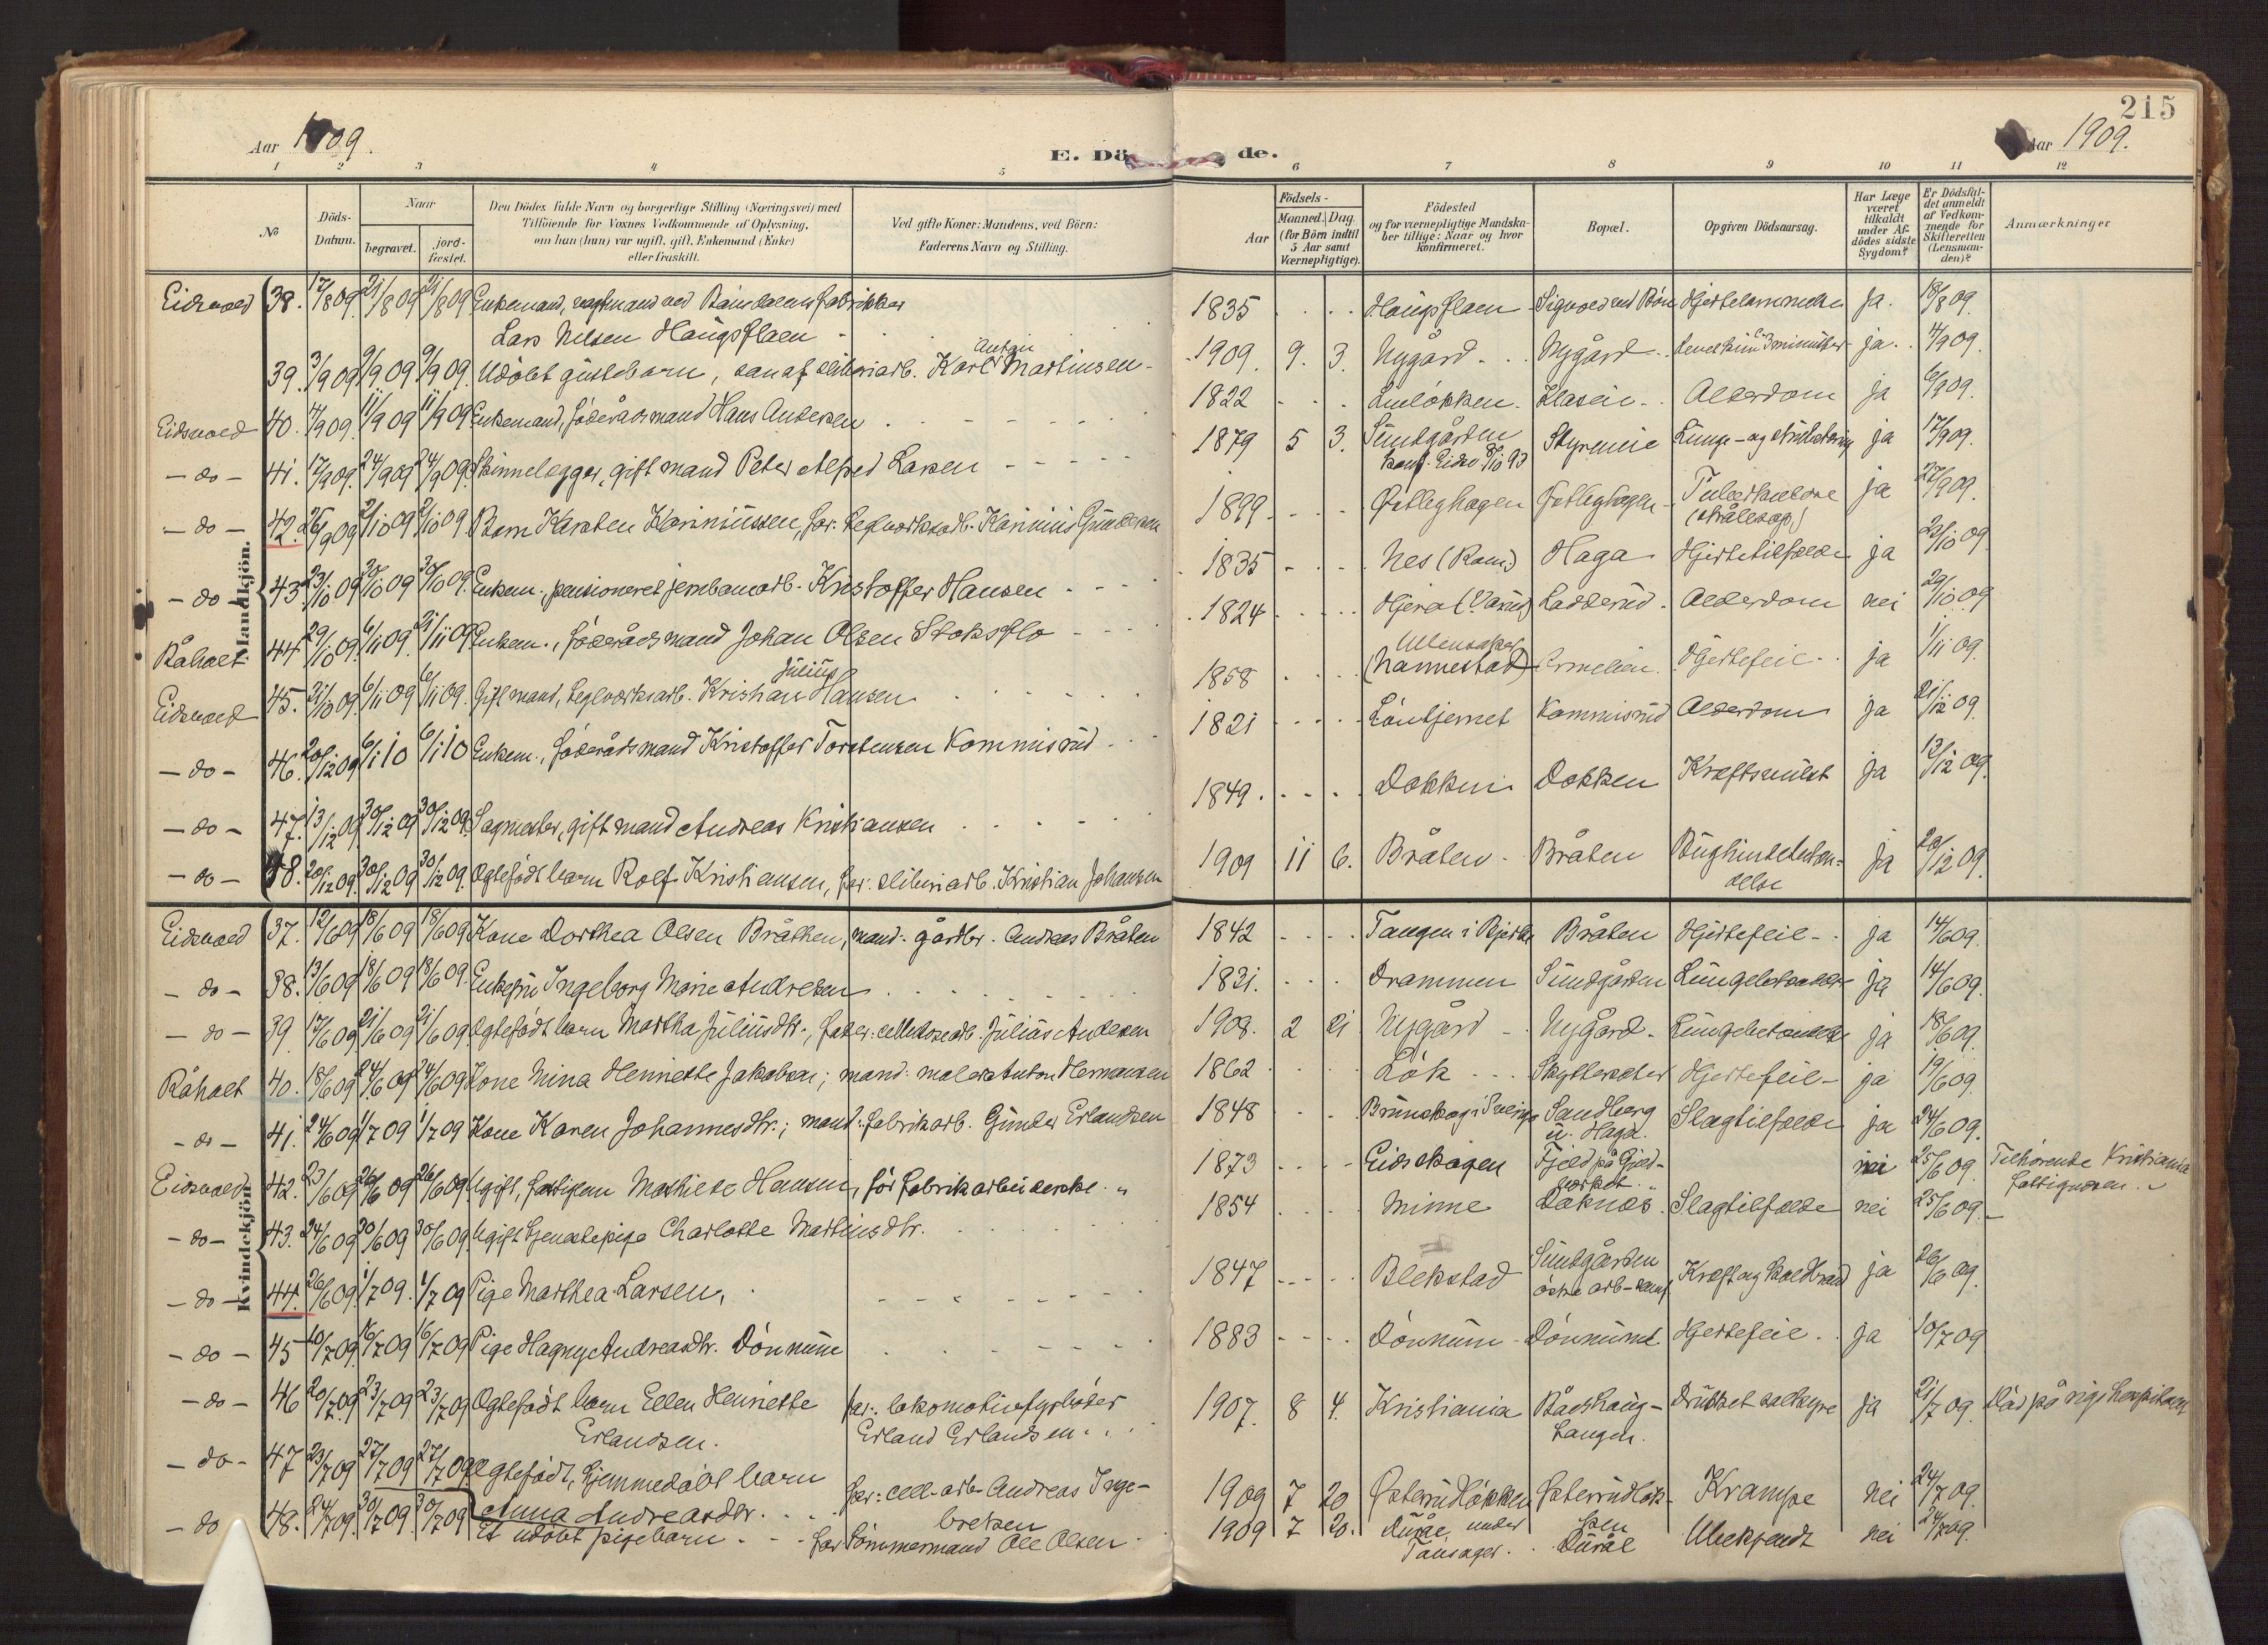 215
Aar 1909.
E. Dö de.
Aar 1909.
1 2 3 4 5 6 7 8 9 10 11 12
No
Döds-Datum.
Naar
begravet.
jord-fæstet.
Den Dödes fulde Navn og borgerlige Stilling (Næringsvei) med
Tilföiende for Voxnes Vedkommende af Oplysning,
om han (hun) var ugift, gift, Enkemand (Enke)
eller fraskilt.
Ved gifte Koner: Mandens, ved Börn:
Faderens Navn og Stilling.
Aar
Födsels-
Maaned. Dag.
(for Börn indtil
5 Aar samt
Værnepligtige).
Födested
og for værnepligtige Mandska-
ber tillige: Naar og hvor
konfirmeret.
Bopæl.
Opgiven Dödsaarsag.
Har Læge
været
tilkaldt
under Af-
dödes sidste
Sygdom?
Er Dödsfal-
det anmeldt
af Vedkom-
mende for
Skifteretten
(Lensman-
den)?
Anmærkninger
Mandkjön.
Eidsvold 38. 17/8 09. 21/8 09 21/8 09 Enkemand, vagtmand ved fabrikker 1835 Haugsflaen Hjertelammelse ja. 18/8 09.
Lars Nilsen Haugsflaen
39. 3/9 09 9/9 09 9/9 09. Udöbt guttebarn, sön af sliberiarb. Karl Anton Martinsen 1909. 9. 3. Nygård Nygård Levet kun 3 minutter ja. 4/9 09.
Eidsvold 40. 4/9 09. 11/9 09 11/9 09 Enkemand, föderådsmand Hans Andersen 1822 Linlökken Alderdom ja 6/9 09.
- do - 41. 17/9 09. 24/9 09 24/9 09. Skinnelegger, gift mand Peter Alfred Larsen 1879 5 3. Sundgården Styrmie Lunge- og ja 17/9 09.
konf. Eidsv. 8/10 93
- do - 42. 26/9 09 2/10 09 2/10 09 Barn Karsten Kariniussen, far: teglverksarb. Karinius Gundersen 1899 Østleghagen Østleghagen Tuberkulose ja 27/9 09.
- do - 43. 23/10 09 30/10 09 30/10 09. Enkem., pensioneret jernbanearb. Kristoffer Hansen 1835 Nes (Rom.) Haga Hjertetilfælde ja 23/10 09
Råholt 44. 29/10 09. 6/11 09. 6/11 09 Enkem., föderådsmand Johan Olsen Stoksflo 1824 Hjera Ladderud Alderdom nei 29/10 09
Eidsvold 45. 31/10 09. 6/11 09 6/11 09. Gift mand, teglverksarb. Kristian Julius Hansen 1858 Ullensaker (Nannestad) Hjertefeil ja 1/11 09.
- do - 46. 20/12 09 6/1 10 6/1 10 Enkem., föderådsmand Kristoffer Torstensen Kommisrud 1821 Löntjernet Kommisrud Alderdom ja 21/12 09.
- do - 47. 13/12 09. 30/12 09 30/12 09. Sagmester, gift mand Andreas Kristiansen 1849 Dokken Dokken Kræftsvulst ja 13/12 09.
- do - 48. 20/12 09. 30/12 09 30/12 09. Ægtefödt barn Rolf Kristiansen, far: sliberiarb. Kristian Johansen 1909 11 6. Bråten Bråten Bughindebeten- ja 20/12 09.
delse
Kvindekjön.
Eidsvold 37. 12/6 09 18/6 09 18/6 09 Kone Dorthea Olsen Bråthen, mand: gårdbr. Andreas Bråten 1842 Tangen i Bjerke Bråten Hjertefeil ja 14/6 09.
- do - 38. 13/6 09 18/6 09 18/6 09. Enkefru Ingeborg Marie Andresen 1831. Drammen Sundgården ja 14/6 09.
- do - 39. 17/6 09 21/6 09 21/6 09 Ægtefödt barn Martha Juliusdtr., fader: cellulosearb. Julius Andersen 1908. 2 21 Nygård Nygård Lungebetændelse ja 18/6 09.
Råholt 40. 18/6 09 24/6 09 24/6 09 Kone Mina Henriette Jakobsen; mand: maler Anton Hermansen 1862 Lök Skyttersæter Hjertefeil ja 19/6 09.
- do - 41. 24/6 09 1/7 09 1/7 09 Kone Karen Johannesdtr.; mand: fabrikarb. Gunder Erlandsen 1848 Brunskog i Sverige Sandberg Slagtilfælde ja 24/6 09.
u. Haga.
Eidsvold 42. 23/6 09 26/6 09 26/6 09 Ugift, fattiglem Mathilde Hansen, för fabrikarbeiderske 1873 Eidskogen Fjeld på Gjeld- nei 25/6 09. Tilhörende Kristiania
verket fattigvæsen.
- do - 43. 24/6 09 30/6 09 30/6 09. Ugift tjenestepige Charlotte Martinsdtr. 1854 Minne Doknæs Slagtilfælde nei 25/6 09.
- do - 44. 26/6 09. 1/7 09. 1/7 09 Pige Marthea Larsen, 1847 Blekstad Sundgården Kræft og koldbrand ja 26/6 09.
östre
- do - 45 10/7 09. 16/7 09 16/7 09 Pige Hagny Andreasdtr. Dönnum 1883 Dönnum Dönnum Hjertefeil ja 10/7 09
- do - 46 20/7 09. 23/7 09 23/7 09 Ægtefödt barn Ellen Henriette far: lokomotivfyrböter 1907. 8 4. Kristiania Bådshaug- Drukket saltsyre ja 21/7 09. Död på rigshospitalet
Erlandsen. Erland Erlandsen Langen.
- do - 47 23/7 09 27/7 09 27/7 09 Ægtefödt, hjemmedöbt barn far: cell-arb Andreas Inge- 1909 7 20 Østerrudlökken Østerrudlök- Krampe nei 24/7 09.
Anna Andreasdtr. bretsen ken
- do 48. 24/7 09. 30/7 09 30/7 09 Et udöbt pigebarn far Tömmermand Ole Olsen 1909 7 20. under Ubekjendt nei 24/7 09.